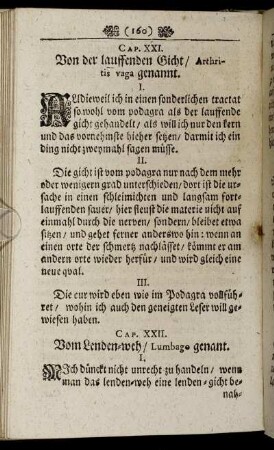 (160)
CAP. XXI.
Von der lauffenden Gicht/ Arthri-
tis vaga genannt.
I.
ALldieweil ich in einen sonderlichen tractat
so wohl vom podagra als der lauffende
gicht gehandelt/ als will ich nur den kern
und das vornehmste hieher setzen/ darmit ich ein
ding nicht zweymahl sagen müsse.
II.
Die gicht ist vom podagra nur nach dem mehr
oder wenigern grad unterschieden/ dort ist die ur-
sache in einen schleimichten und langsam fort-
lauffenden sauer/ hier fleust die materie nicht auf
einmahl durch die nerven/ sondern/ bleibet etwa
sitzen/ und gehet ferner anderswo hin: wenn an
einen orte der schmertz nachlässet/ kömmt er am
andern orte wieder herfür/ und wird gleich eine
neue qval.
III.
Die cur wird eben wie im Podagra vollfüh-
ret/ wohin ich auch den geneigten Leser will ge-
wiesen haben.
CAP. XXII.
Vom Lenden-weh/ Lumbago genant.
I.
MIch dünckt nicht unrecht zu handeln/ wenn
man das lenden-weh eine lenden-gicht be-
nah-